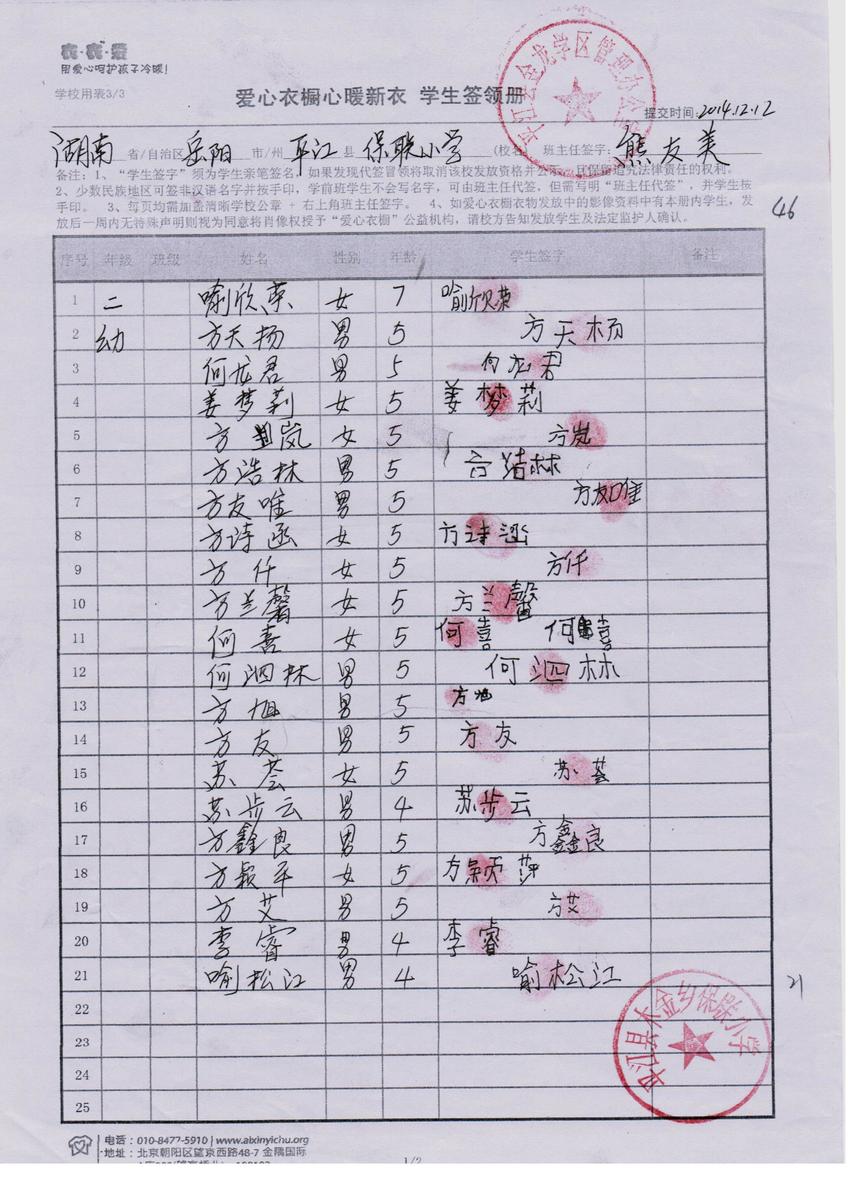 衣·衣·爱
用爱心呵护孩子冷暖!
学校用表3/3
爱心衣橱心暖新衣 学生签领册
提交时间:2014.12.12
湖南 省/自治区 岳阳 市/州 平江 县 保联小学 (校名) 班主任签字: 熊友美
备注:1、“学生签字”须为学生亲笔签名,如果发现代签冒领将取消该校发放资格并公示,且保留追究法律责任的权利。
2、少数民族地区可签非汉语名字并按手印,学前班学生不会写名字,可由班主任代签,但需写明“班主任代签”,并学生按
手印。 3、每页均需加盖清晰学校公章 + 右上角班主任签字。 4、如爱心衣橱衣物发放中的影像资料中有本册内学生,发
放后一周内无特殊声明则视为同意将肖像权授予“爱心衣橱”公益机构,请校方告知发放学生及法定监护人确认。
46
序号 年级 班级 姓名 性别 年龄 学生签字 备注
1 二 喻欣荣 女 7 喻欣荣
2 幼 方天扬 男 5 方天杨
3 何龙君 男 5 何龙君
4 姜梦莉 女 5 姜梦莉
5 方岚 女 5 方岚
6 方浩林 男 5 方浩林
7 方友唯 男 5 方友唯
8 方诗函 女 5 方诗涵
9 方仟 女 5 方仟
10 方兰馨 女 5 方兰馨
11 何喜 女 5 何喜 何喜
12 何泗林 男 5 何泗林
13 方旭 男 5 方旭
14 方友 男 5 方友
15 苏荟 女 5 苏荟
16 苏步云 男 4 苏步云
17 方鑫良 男 5 方鑫良
18 方颖平 女 5 方颖萍
19 方艾 男 5 方艾
20 李睿 男 4 李睿
21 喻松江 男 4 喻松江
21
22
23
24
25
平江县金龙学区管理办公室
平江县木金乡保联小学
电话:010-8477-5910 | www.aixinyichu.org
地址:北京朝阳区望京西路48-7 金隅国际
1/2